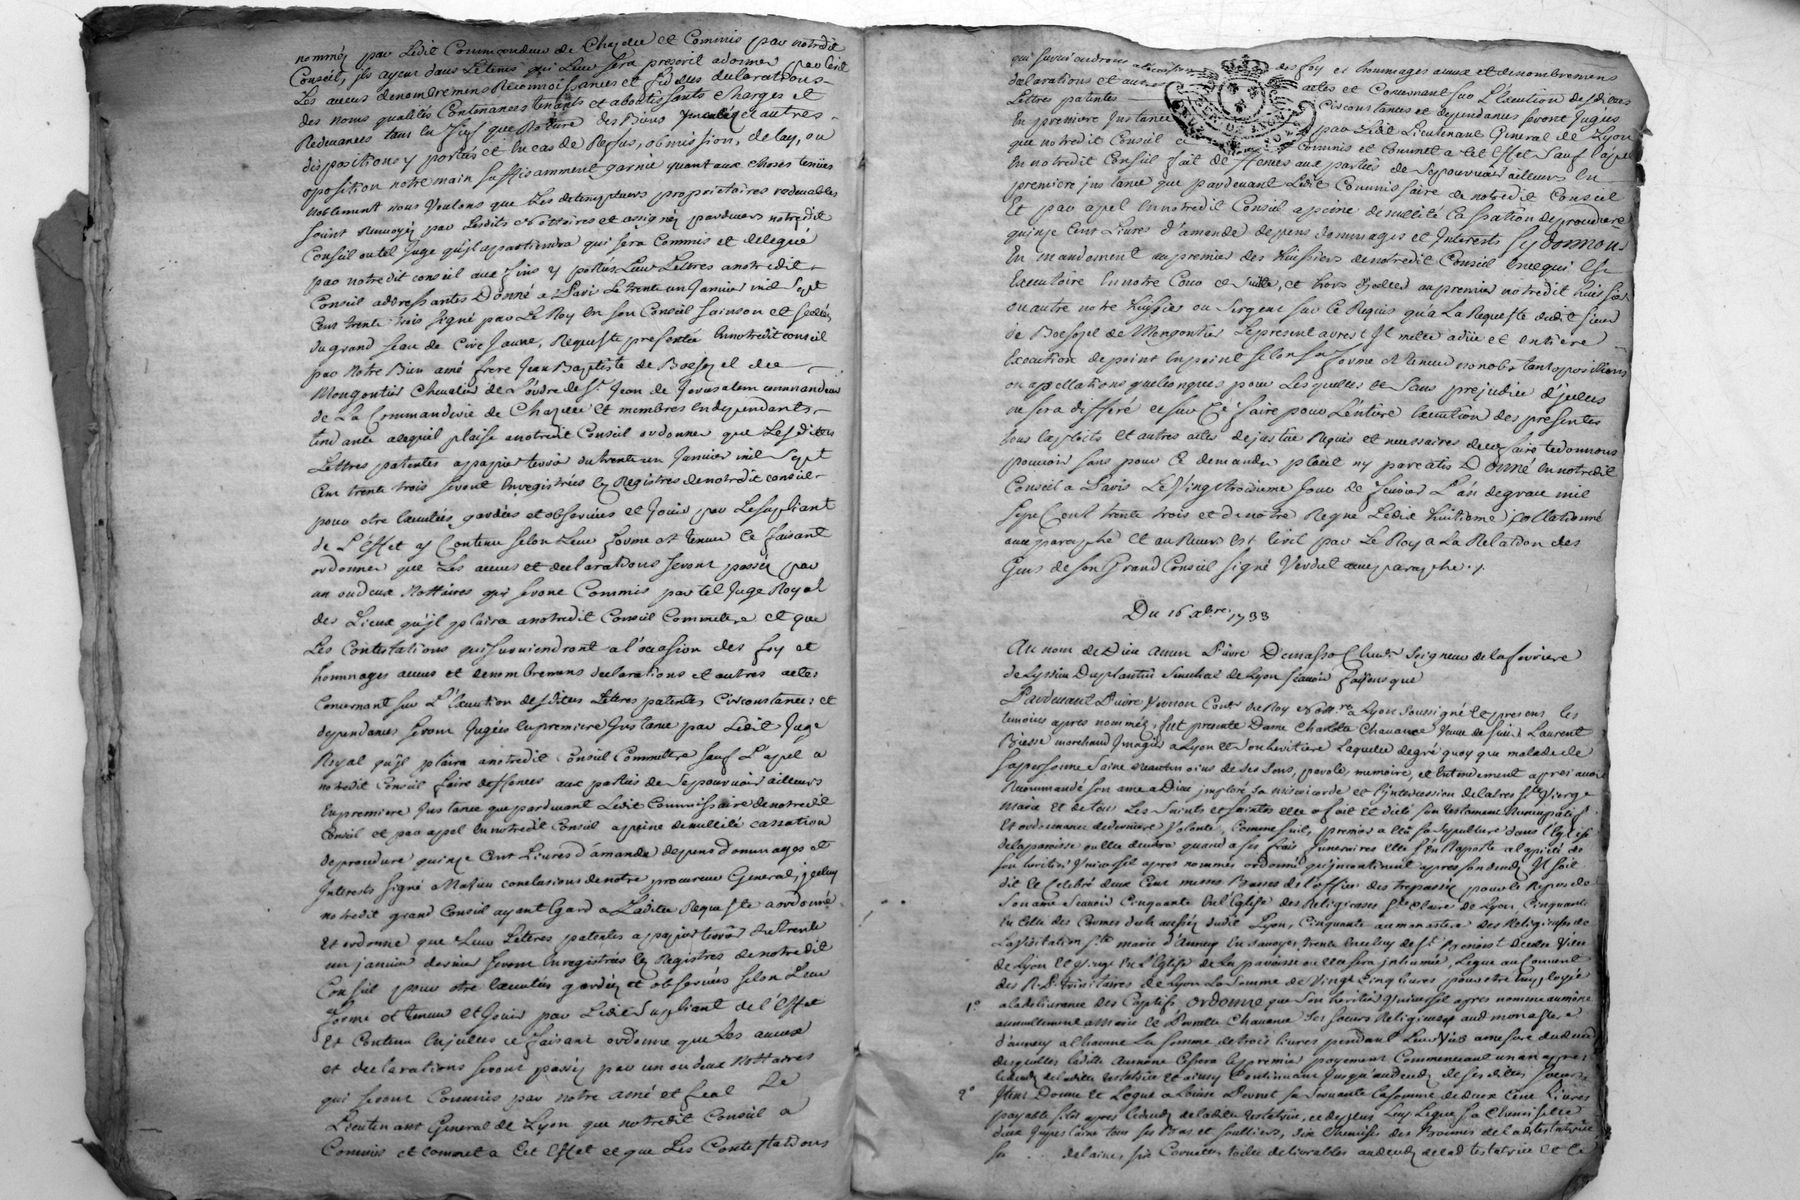 nommés par Ledit Commandeur de Chazelle et Commis par notredit
Conseil, ils ayent dans Le tems qui Leur sera prescrit adonner par
Les aveus denombremens Reconnoissances et fidelles declarations
des noms qualités Contenances tenants et aboutissants charges et
Redevances tant en fief que Roture des Biens et autres
dispositions y portés et En cas de Refus, obmission, delay, ou
opposition notre main suffisamment garnie quant aux choses tenües
noblement nous Voulons que Les detempteurs proprietaires redevables
soient Renvoyés par Lesdits Nottaires et assignés pardevers notredit
Conseil ou tel Juge qu'il apartiendra qui sera Commis et delegué
par notredit conseil aux fins y portés Leur Lettres anotredit
Conseil addressantes Donné a Paris Le trente un Janvier mil Sept
Cens trente trois signé par Le Roy En son Conseil Sainson et scellées
du grand seau de Cire Jaune, Requeste presentée Ennotredit conseil
par Notre Bien amé frere Jean Baptiste de Bocsozel de
Mongontier Chevalier de L'ordre de St Jean de Jerusalem commandeur
de La Commanderie de Chazelle et membres En dependants
tendante acequil plaise anotredit Conseil ordonner que Lesdittes
Lettres patentes apapier terrier du trente un Janvier mil Sept
Cens trente trois seront Enregistrées Es Registres denotredit conseil
pour etre Executées gardées et observées et Jouir par Lesupliant
de L'Effet y Contenu selon Leur forme et teneur Ce faisant
ordonner que Les aveus et declarations seront passés par
un oudeux Nottaires qui seront Commis par tel Juge Royal
des Lieux qu'il plaira anotredit Conseil Commettre et que
Les Contestations quisurviendront a l'ocasion des foy et
hommages aveus et denombremens declarations et autres actes
Concernant sur L'Execution desdittes Lettres patentes Circonstances et
dependances seront Jugées Enpremiere Instance par Ledit Juge
Royal qu'il plaira anotredit Conseil Commettre sauf L'apel a
notredit Conseil faire deffences aux parties de Sepourvoir ailleurs
Enpremiere Instance que pardevant Ledit Commissaire denotredit
Conseil et par appel Ennotredit Conseil apeine denullité cassation
deprocedure quinze Cent Livres d'amande depens dommages et
Interests signé conclusions denotre procureur General, Iceluy
notredit grand Conseil ayant Egard a Laditte Requeste aordonné
Et ordonne que Leur Lettres patentes apapier terrier du trente
un janvier dernier seront Enregistrées Es Registres denotredit
Conseil pour etre Executées gardées et observées selon Leur
forme et teneur Et Jouir par Ledit Supliant de l'Effet
Et Contenu Enicelles ce faisant ordonne que Les aveux
et declarations seront passés par un oudeux Nottaires
qui seront Commis par notre amé et feal Le
Lieutenant General de Lyon que notredit Conseil a
Commis et commet a Cet Effet et que Les Contestations
qui surviendrons alocasion des foy et hommages aveux et denombremens
declarations et autres actes et Concernant sur L'Execution desdittes
Lettres patentes Circonstances et dependances seront Jugées
En premiere Instance par Ledit Lieutenant General de Lyon
que notredit Conseil a Commis et Commet a cet Effet Sauf l'apel
En notredit Conseil fait deffences aux parties de Sepourvoir ailleurs En
premiere instance que pardevant Ledit Commissaire de notredit Conseil
Et par apel Ennotredit Conseil apeine denullité Cassation deprocedure
quinze Cent Livres d'amende depens dommages et Interests Sy donnons
En mandement aupremier des huissiers denotredit Conseil Encequi Est
Executoire Ennotre Cour et suitte, et hors d'icelles aupremier notredit huissier
ou autre notre huissier ou sergent sur ce Requis qu'a La Requeste dudit sieur
de Bocsozel de Mongontier Lepresent arrest Il mette adüe et entiere
Execution depoint Enpoint selon sa forme et teneur nonobstant oppositions
ou appellations quelconques pour Lesquelles et Sans prejudice d'jcelles
ne sera differé et sur Ce faire pour L'entiere Execution des presentes
tous Exploits et autres actes dejustice Requis et necessaires decefaire tedonnons
pouvoir sans pour Ce demander placet ny pareatis Donné Ennotredit
Conseil a Paris Le Vingttroisieme Jour de fevrier L'an degrace mil
Sept Cent trente trois et denotre Regne Ledix huitieme Collationné
avec paraphe Et au Revers est Ecrit par Le Roy a La Relation des
Gens de son Grand Conseil signé Verdul avec paraphe ./.
Du 16 xbre 1733
Au nom de Dieu amen Pierre Demasso Chevr Seigneur de la ferriere
de Lissieu Duplantin Senechal de Lyon scavoir faisons que
Pardevant Pierre Vernon Conr du Roy Nottre a Lyon soussigné Et presens les
temoins apres nommés, fut presente Dame Charlotte Chavance Veuve de sieur Laurent
Biesse marchand Imagér a Lyon et son heritiere Laquelle degré quoy que malade de
sapersonne Saine neantmoins de ses Sens, parole, memoire, et Entendement apres avoir
Recommandé son ame a Dieu imploré sa misericorde et l'intercession de la tres Ste Vierge
Marie et de tous Les Saints et saintes elle a fait et dicté son testament Nuncupatif
Et ordonnance dederniere Volonté, Comme suit, premier a Elû sa sepulture dans l'Eglise
delaparoisse ou elle decedera quand a ses frais funeraires elle s'En Raporte a lapieté de
son heritier Universel apres nommés ordonne qu'incontinent apres son deceds Il soit
dit et Celebré deux Cent messes Basses de l'office des trepassés pour le Repos de
Son ame Scavoir Cinquante En l'Eglise des Religieuses Ste Claire de Lyon, Cinquante
En Celle des Carmes dechaussés dudit Lyon, Cinquante au monastere des Religieuses de
La Visitation Ste Marie d'Annecy En Savoye, trente En celuy de St Benoist de cette Ville
de Lyon et Vingt En L'Eglise de La paroisse ou elle sera inhumée, Legue au Couvent
des R.P. trinitaires de Lyon La Somme de Vingt Cinq livres pour etre Employée
1o a la delivrance des Captifs, ordonne que son heritier Universel apres nommé aumone
annuellement a Marie et Pernette Chavance Ses soeurs Religieuses aud monastere
d'annecy a Chacune La Somme de trois livres pendant Leur Vie amesure du deceds
desquelles laditte Aumone Cessera Le premier payement Commencant un an apres
Ledeceds de laditte testatrice et ainsy Continuant Jusqu'audeceds de ses dittes soeurs
2o Item Donne et Legue a Loüise Pernet sa servante La somme de deux Cent Livres
payable Sitôt apres ledeceds de laditte testatrice, et deplus Luy Legue sa
deux Jupes laine tous ses Bas et soulliers, six Chemises des Bonnes de lad testatrice
de laine, six Cornettes toille delivrables audeceds de lad testatrice et le